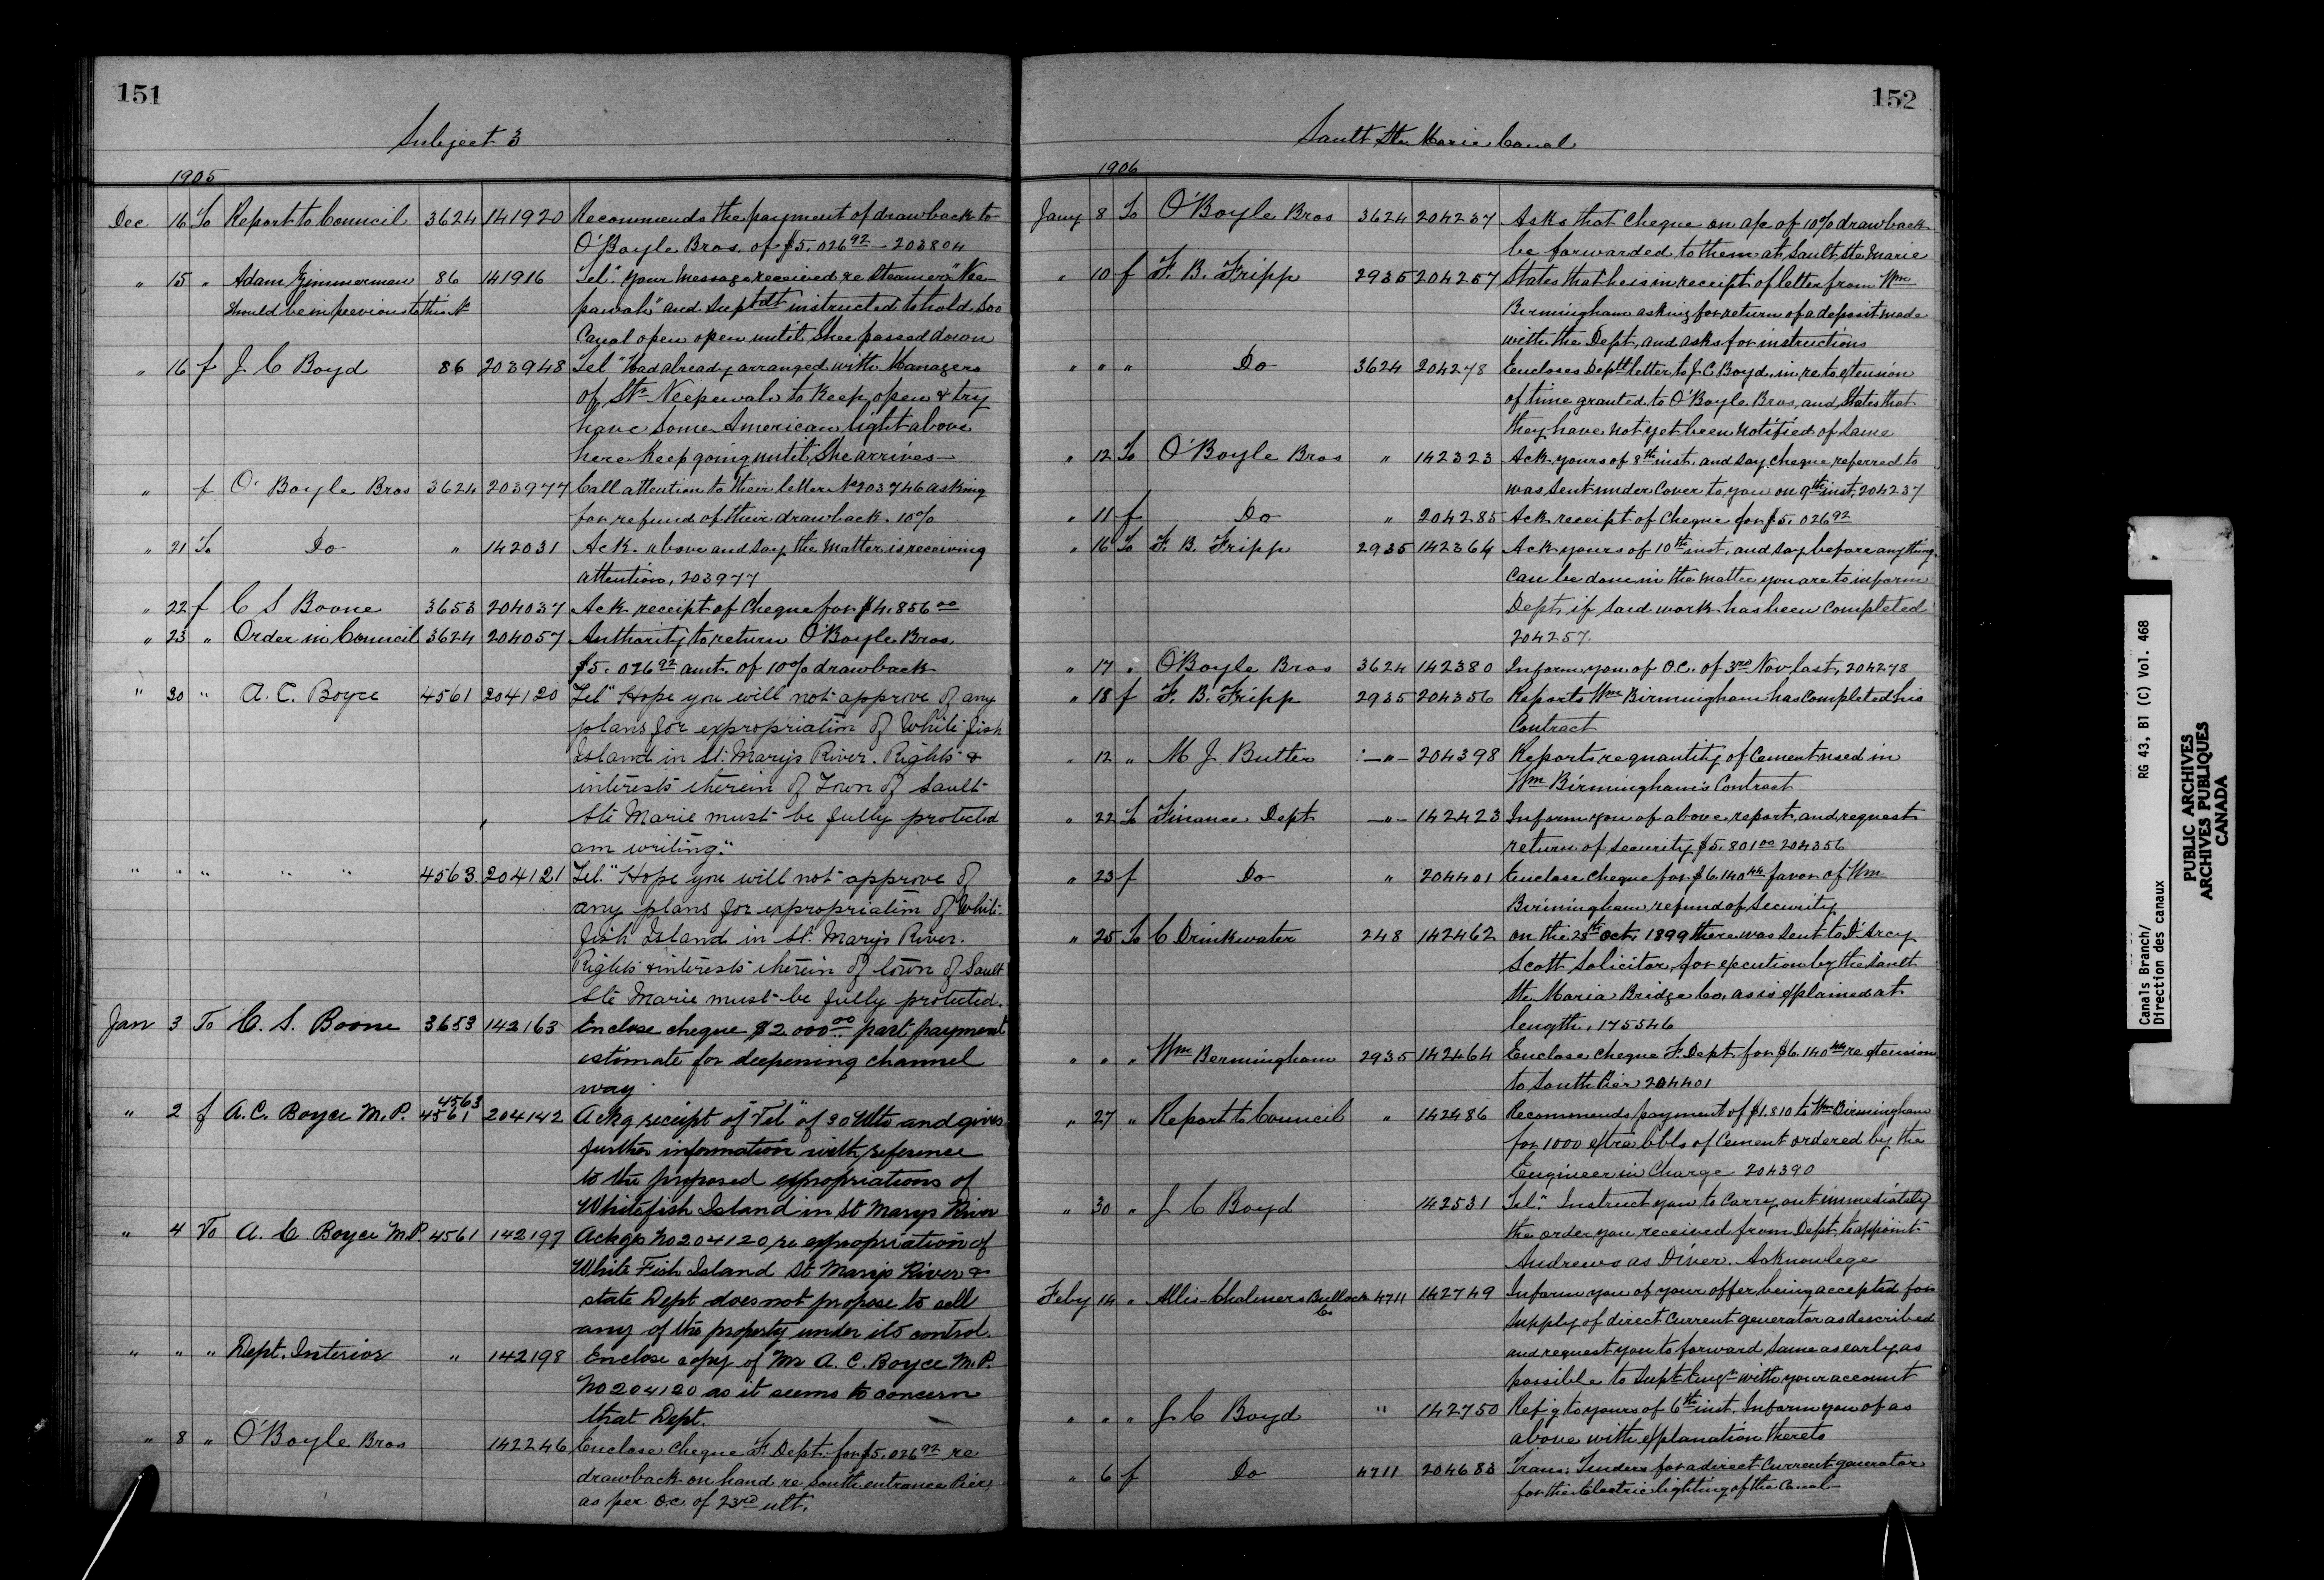 151
Subject 3
1905
Dec 16 To Report to Council 3624 141920 Recommends the payment of drawback to
O'Boyle Bros. of $5.026 92 — 203804
" 15 " Adam Zimmerman 86 141916 Tel. "Your message received re Steamer "Nee-
Should be in previous to this No pawah" and Suptdt instructed to hold Soo
Canal open open until She passed down
" 16 f J C Boyd 86 203948 Tel "Had already arranged with Managers
of Str Neepewah to keep open & try
have some American light above
here keep going until She arrives —
" f O'Boyle Bros 3624 203977 Call attention to their letter No 203746 asking
for refund of their drawback. 10%
" 21 To Do " 142031 Ack. above and say the matter is receiving
attention, 203977
" 22 f C S Boone 3653 204037 Ack receipt of Cheque for $4.856 00
" 23 " Order in Council 3624 204057 Authority to return O'Boyle Bros.
$5.026 92 amt. of 10% drawback
" 30 " A. C. Boyce 4561 204120 Tel "Hope you will not approve of any
plans for expropriation of White fish
Island in St. Mary's River. Rights &
interests therein of Town of Sault
Ste Marie must be fully protected
am writing."
" " " " " 4563 204121 Tel. "Hope you will not approve of
any plans for expropriation of White-
fish Island in St. Mary's River.
Rights & interests therein of town of Sault
Ste Marie must be fully protected.
Jan 3 To C. S. Boone 3653 142163 Enclose cheque $2.000 00 part payment
estimate for deepening channel
way
" 2 f A. C. Boyce M.P. 4563 4561 204142 Ackg receipt of "Tel" of 30 Ulto and gives
further information with reference
to the proposed expropriations of
Whitefish Island in St Marys River
" 4 To A. C Boyce M.P. 4561 142197 Ackgs No 204120 re expropriation of
White Fish Island St Marys River &
state Dept does not propose to sell
any of the property under its control.
" " " Dept. Interior " 142198 Enclose copy of Mr A. C. Boyce M.P.
No 204120 as it seems to concern
that Dept.
" 8 " O'Boyle Bros 142246 Enclose Cheque F. Dept. for $5.026 92 re
drawback on hand re South entrance Pier,
as per O.C. of 23rd ult.
152
Sault Ste Marie Canal
1906
Jany 8 To O'Boyle Bros 3624 204237 Asks that Cheque on a/c of 10% drawback
be forwarded to them at Sault Ste Marie
" 10 f F. B. Fripp 2935 204257 States that he is in receipt of letter from Wm
Birmingham asking for return of a deposit made
with the Dept, and asks for instructions
" " " Do 3624 204278 Encloses Deptl letter to J. C Boyd in re to extension
of time granted to O'Boyle Bros, and States that
they have not yet been notified of same
" 12 To O'Boyle Bros " 142323 Ack yours of 8th inst. and say cheque referred to
was sent under Cover to you on 9th inst, 204237
" 11 f Do " 204285 Ack receipt of Cheque for $5.026 92
" 16 To F. B. Fripp 2935 142364 Ack yours of 10th inst. and say before anything
can be done in the matter you are to inform
Dept. if said work has been completed
204257
" 17 " O'Boyle Bros 3624 142380 Inform you of O.C. of 3rd Nov last, 204278
" 18 f F. B. Fripp 2935 204356 Reports Wm Birmingham has completed his
Contract
" 12 " M J. Butler —"— 204398 Reports re quantity of Cement used in
Wm Birmingham's Contract
" 22 To Finance Dept —"— 142423 Inform you of above report, and request
return of Security $5.801 00 204356
" 23 f Do " 204401 Enclose Cheque for $6.140 44 favor of Wm
Birmingham refund of Security
" 25 To C Drinkwater 248 142462 On the 28th Oct. 1899 there was sent to D'Arcy
Scott Solicitor, for execution by the Sault
Ste. Maria Bridge Co, as is explained at
length, 175546
" " " Wm Bermingham 2935 142464 Enclose Cheque F. Dept. for $6.140 44 re extension
to South Pier 204401
" 27 " Report to Council " 142486 Recommends payment of $1.810 to Wm Birmingham
for 1000 extra bbls of Cement ordered by the
Engineer in Charge 204390
" 30 " J C Boyd 142531 Tel. "Instruct you to carry out immediately
the order you received from Dept. to appoint
Andrews as Diver. Acknowlege
Feby 14 " Allis-Chalmers Bullock Co 4711 142749 Inform you of your offer being accepted for
supply of direct Current generator as described
and request you to forward same as early as
possible to Supt. Engr with your account
" " " J C Boyd " 142750 Ref'g to yours of 6th inst. Inform you of as
above with explanation thereto
" 6 f Do 4711 204683 Trans: Tenders for a direct Current generator
for the Electric lighting of the Canal —
Canals Branch/ RG 43, B1 (C) Vol. 468
Direction des canaux
PUBLIC ARCHIVES
ARCHIVES PUBLIQUES
CANADA